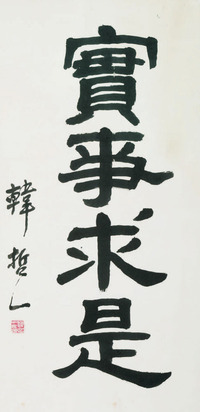 實事求是
韓哲一